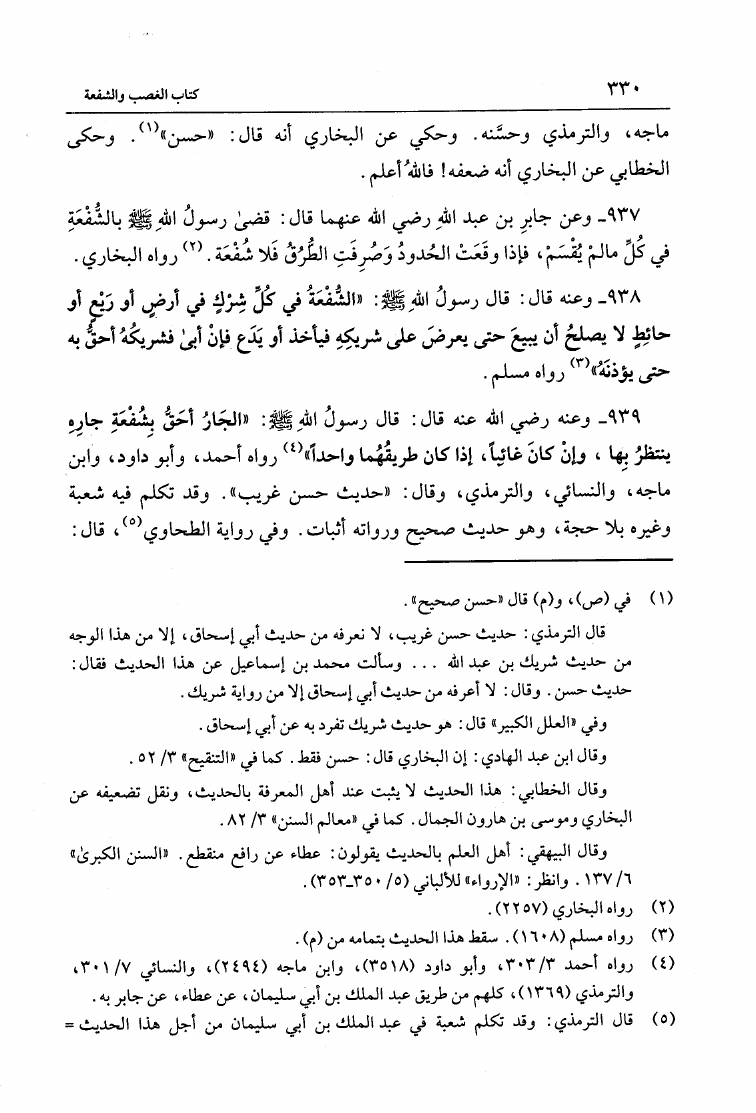 ٣٣٠
كتاب الغصب والشفعة
ماجه، والترمذي وحسَّنه. وحكي عن البخاري أنه قال: «حسن»(١). وحكى
الخطابي عن البخاري أنه ضعفه! فاللهُ أعلم.
٩٣٧ـ وعن جابرِ بن عبد اللهِ رضي الله عنهما قال: قضىٰ رسولُ اللهِ ﷺ بالشُّفْعَةِ
في كُلِّ مالمْ يُقْسَمْ، فإذا وقَعَتْ الحُدودُ وَصُرِفَتِ الطُّرُقُ فَلا شُفْعَة.(٢) رواه البخاري.
٩٣٨ـ وعنه قال: قال رسولُ اللهِ ﷺ: «الشُّفْعَةُ في كُلِّ شِرْكٍ في أرضٍ أو رَبْعٍ أو
حائطٍ لا يصلحُ أن يبيعَ حتى يعرضَ على شريكِهِ فيأخذ أو يَدَع فإنْ أبىٰ فشريكُهُ أحقُّ به
حتى يؤذنَهُ»(٣) رواه مسلم.
٩٣٩ـ وعنه رضي الله عنه قال: قال رسولُ اللهِ ﷺ: «الجَارُ أحَقُّ بِشُفْعَةِ جارِهِ
ينتظرُ بِها ، وإنْ كانَ غائِباً، إذا كان طريقُهُما واحداً»(٤) رواه أحمد، وأبو داود، وابن
ماجه، والنسائي، والترمذي، وقال: «حديث حسن غريب». وقد تكلم فيه شعبة
وغيره بلا حجة، وهو حديث صحيح ورواته أثبات. وفي رواية الطحاوي(٥)، قال:
(١) في (ص)، و(م) قال «حسن صحيح».
قال الترمذي: حديث حسن غريب، لا نعرفه من حديث أبي إسحاق، إلا من هذا الوجه
من حديث شريك بن عبد الله ... وسألت محمد بن إسماعيل عن هذا الحديث فقال:
حديث حسن. وقال: لا أعرفه من حديث أبي إسحاق إلا من رواية شريك.
وفي «العلل الكبير» قال: هو حديث شريك تفرد به عن أبي إسحاق.
وقال ابن عبد الهادي: إن البخاري قال: حسن فقط. كما في «التنقيح» ٣/ ٥٢.
وقال الخطابي: هذا الحديث لا يثبت عند أهل المعرفة بالحديث، ونقل تضعيفه عن
البخاري وموسى بن هارون الجمال. كما في «معالم السنن» ٣/ ٨٢.
وقال البيهقي: أهل العلم بالحديث يقولون: عطاء عن رافع منقطع. «السنن الكبرىٰ»
٦/ ١٣٧. وانظر: «الإرواء» للألباني (٥/ ٣٥٠ـ٣٥٣).
(٢) رواه البخاري (٢٢٥٧).
(٣) رواه مسلم (١٦٠٨). سقط هذا الحديث بتمامه من (م).
(٤) رواه أحمد ٣/ ٣٠٣، وأبو داود (٣٥١٨)، وابن ماجه (٢٤٩٤)، والنسائي ٧/ ٣٠١،
والترمذي (١٣٦٩)، كلهم من طريق عبد الملك بن أبي سليمان، عن عطاء، عن جابر به.
(٥) قال الترمذي: وقد تكلم شعبة في عبد الملك بن أبي سليمان من أجل هذا الحديث =